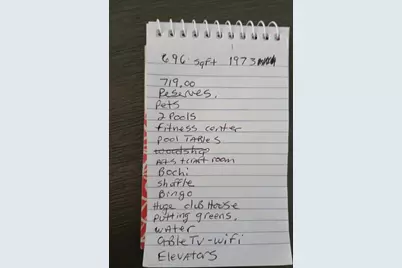 696 SqFt 1973
719.00
Reserves.
Pets
2 Pools
Fitness center
Pool TABles
woodshop
room
Bochi
Shuffle
Bingo
Huge club House
Putting greens.
WATER
CABle TV-WiFi
ElevATors